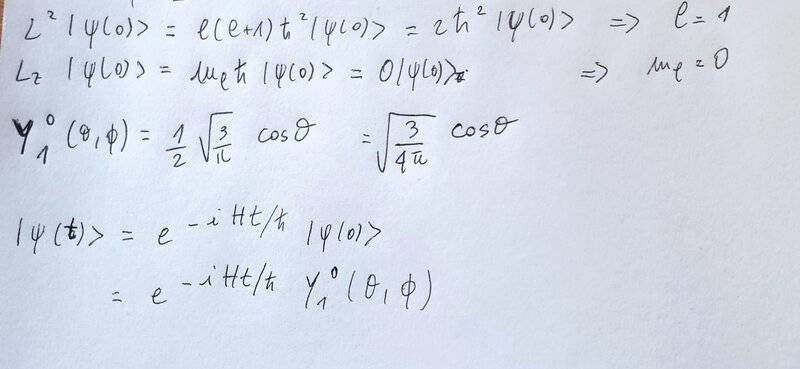 L² |ψ(0)> = ℓ(ℓ+1) ħ² |ψ(0)> = 2ħ² |ψ(0)> => ℓ = 1
L_z |ψ(0)> = m_ℓ ħ |ψ(0)> = 0|ψ(0)> => m_ℓ = 0
Y₁⁰ (θ,ϕ) = 1/2 √(3/π) cosθ = √(3/4π) cosθ
|ψ(t)> = e^(-iHt/ħ) |ψ(0)>
= e^(-iHt/ħ) Y₁⁰ (θ,ϕ)